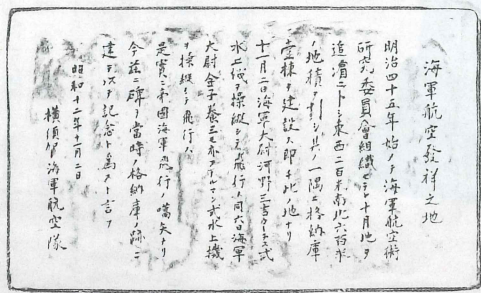 海軍航空發祥之地
明治四十五年始メテ海軍航空術
研究委員會組織セラレ十月地ヲ
追濱ニ卜シ東西二百米南北六百米
ノ地積ヲ劃シ其ノ一隅ニ格納庫
壹棟ヲ建設ス即チ此ノ地ナリ
十一月二日海軍大尉河野三吉カーチス式
水上機ヲ操縱シテ飛行シ同六日海軍
大尉金子養三モ亦ファルマン式水上機
ヲ操縱シテ飛行ス
是實ニ帝國海軍飛行ノ嚆矢ナリ
今茲ニ碑ヲ當時ノ格納庫ノ跡ニ
建テ以テ記念ト爲スト言フ
昭和十二年十一月二日
横須賀海軍航空隊